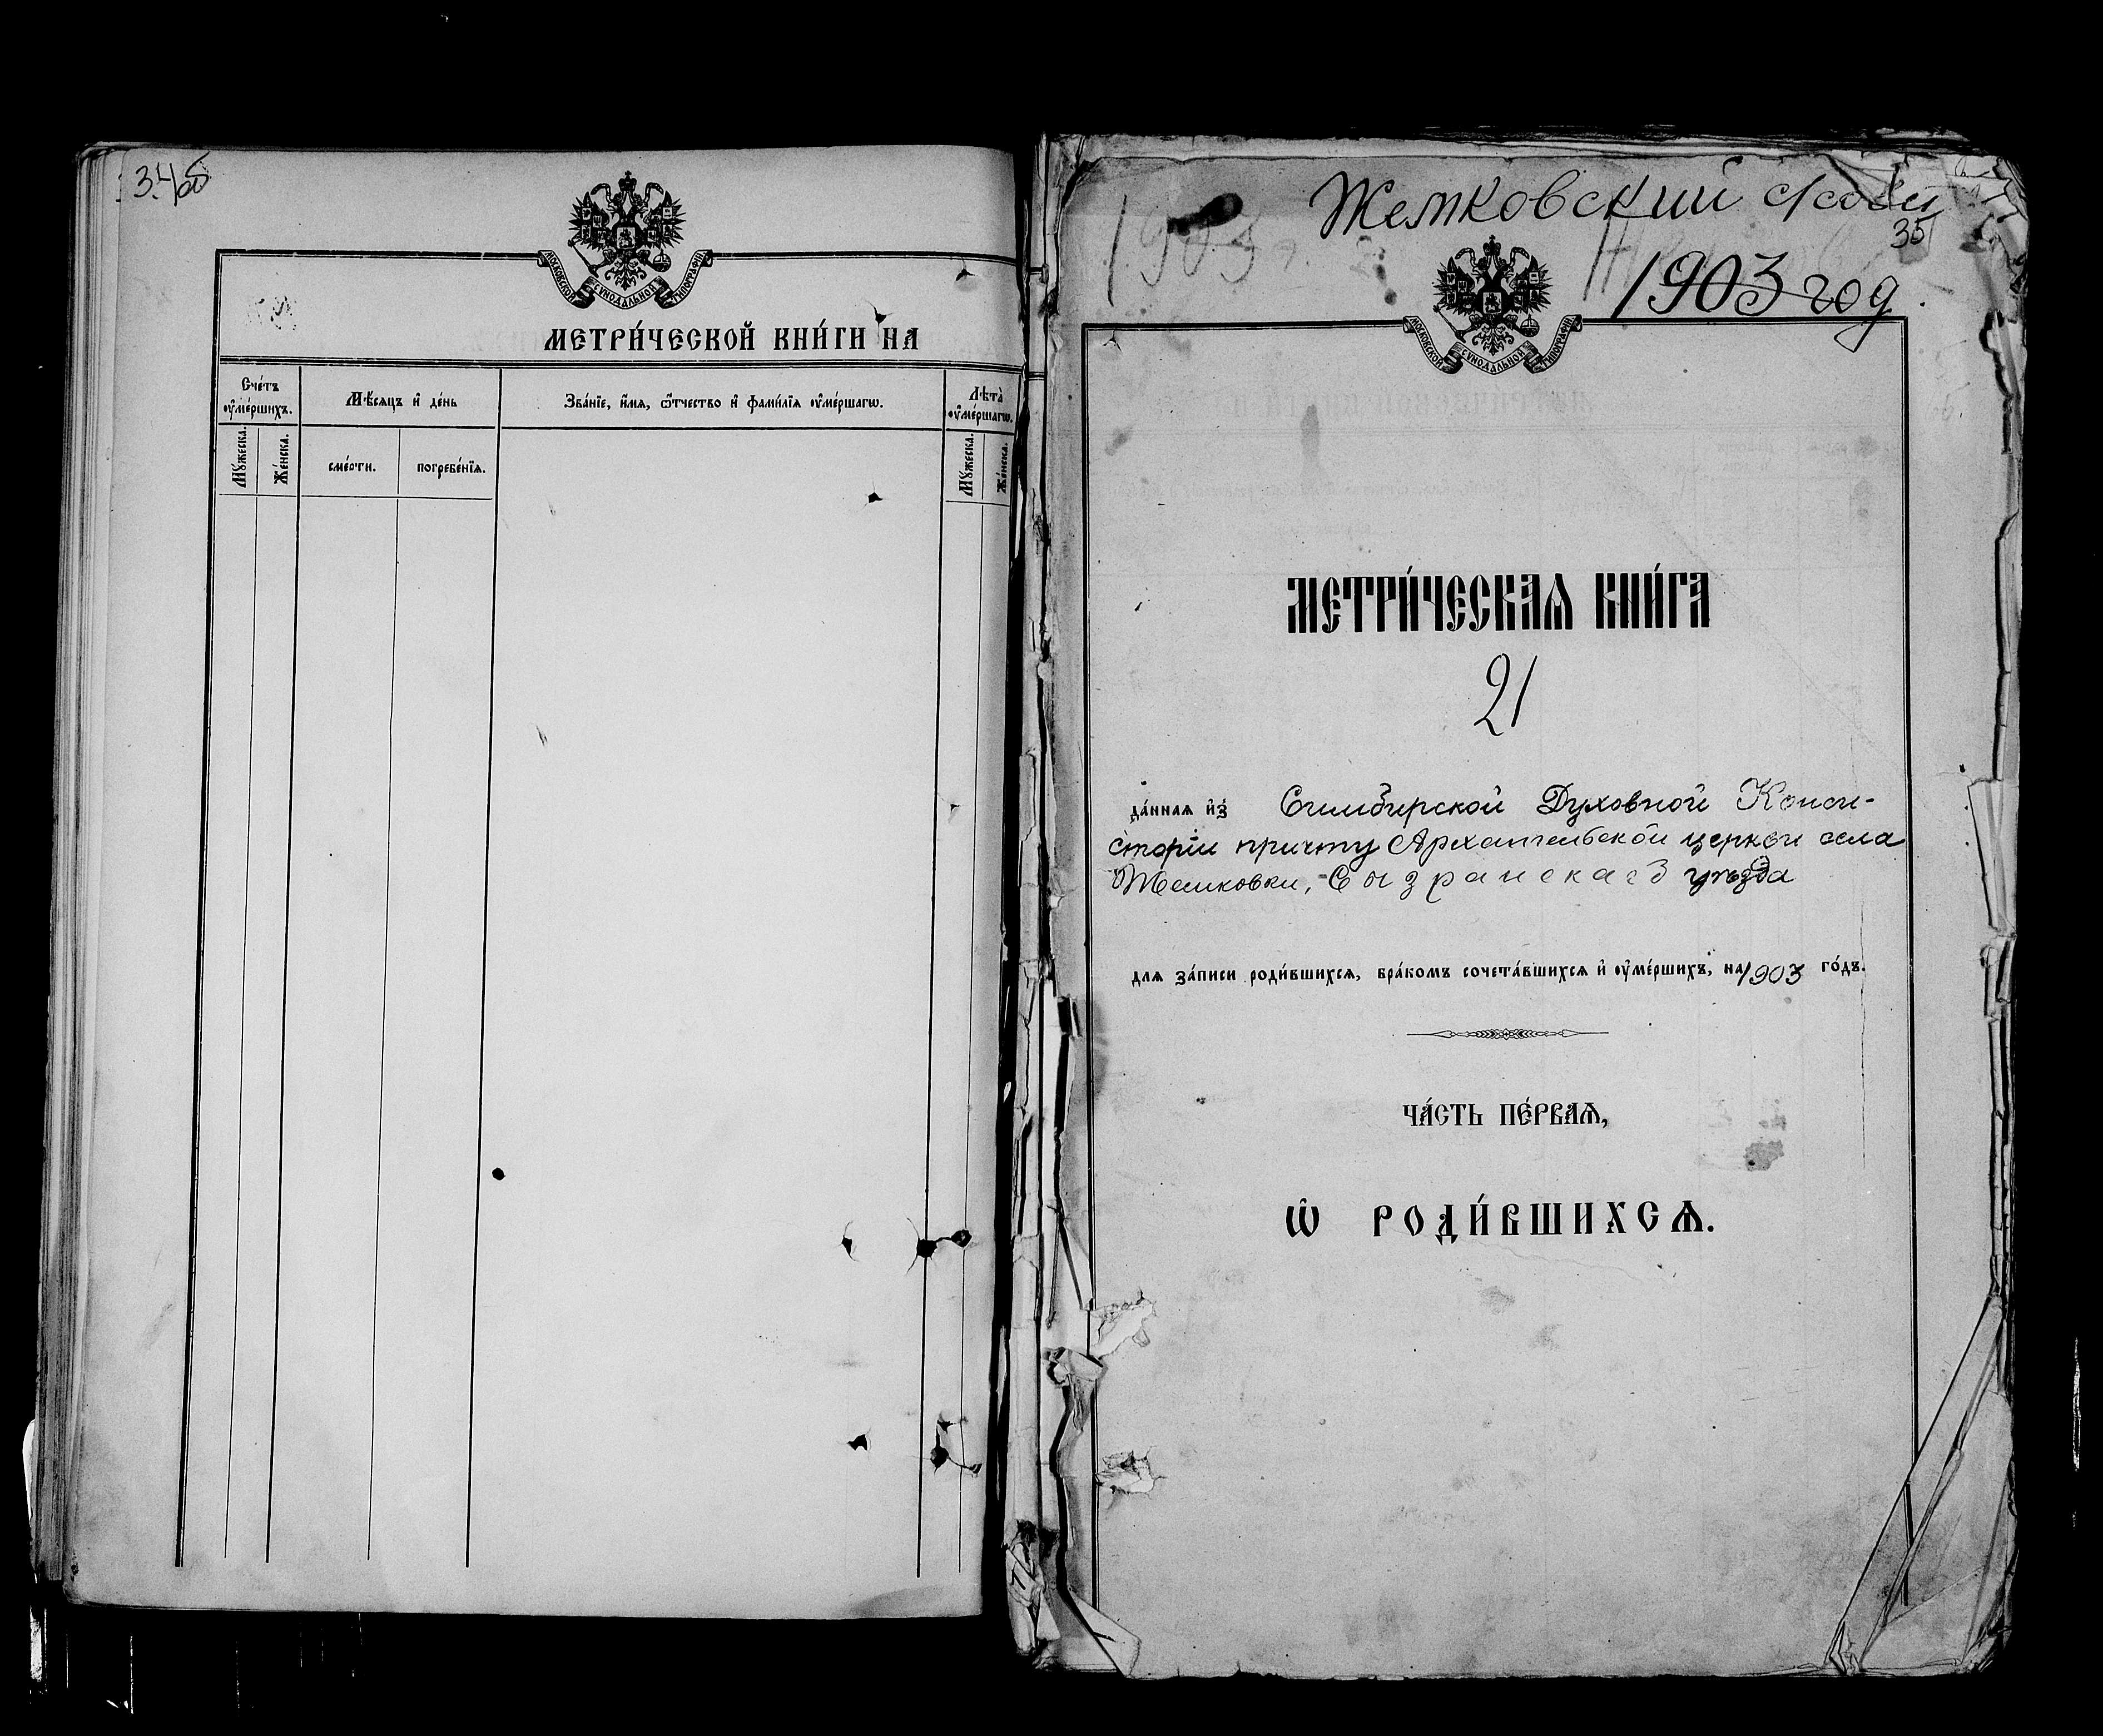 34об
МОСКОВСКОЙ СѴНОДАЛЬНОЙ ТИПОГРАФІИ
МЕТРИ́ЧЕСКОЙ КНИ́ГИ НА
Сче́тъ ᲂу҆ме́ршихъ.
Мѣ́сяцъ и҆ де́нь
Зва́нїе, и҆́мя, ѻ҆́тчество и҆ фами́лїя ᲂу҆ме́ршагѡ.
Лѣ́та ᲂу҆ме́ршагѡ.
Мꙋ́жеска.
Же́нска.
сме́рти.
погребе́нїя.
Мꙋ́жеска.
Же́нска.
Жемковский
35
1903 г.
1903 год.
МОСКОВСКОЙ СѴНОДАЛЬНОЙ ТИПОГРАФІИ
МЕТРИ́ЧЕСКАѦ КНИ́ГА
21
да́нная и҆з̾ Симбирской Духовной Конси-
сторіи причту Архангельской церкви села
Жемковки, Сызранскаго уѣзда
для за́писи роди́вшихся, бра́комъ сочета́вшихся и҆ ᲂу҆ме́ршихъ, на 1903 го́дъ.
ЧА́СТЬ ПЕ́РВАѦ,
Ѡ҆ РОДИ́ВШИХСѦ.